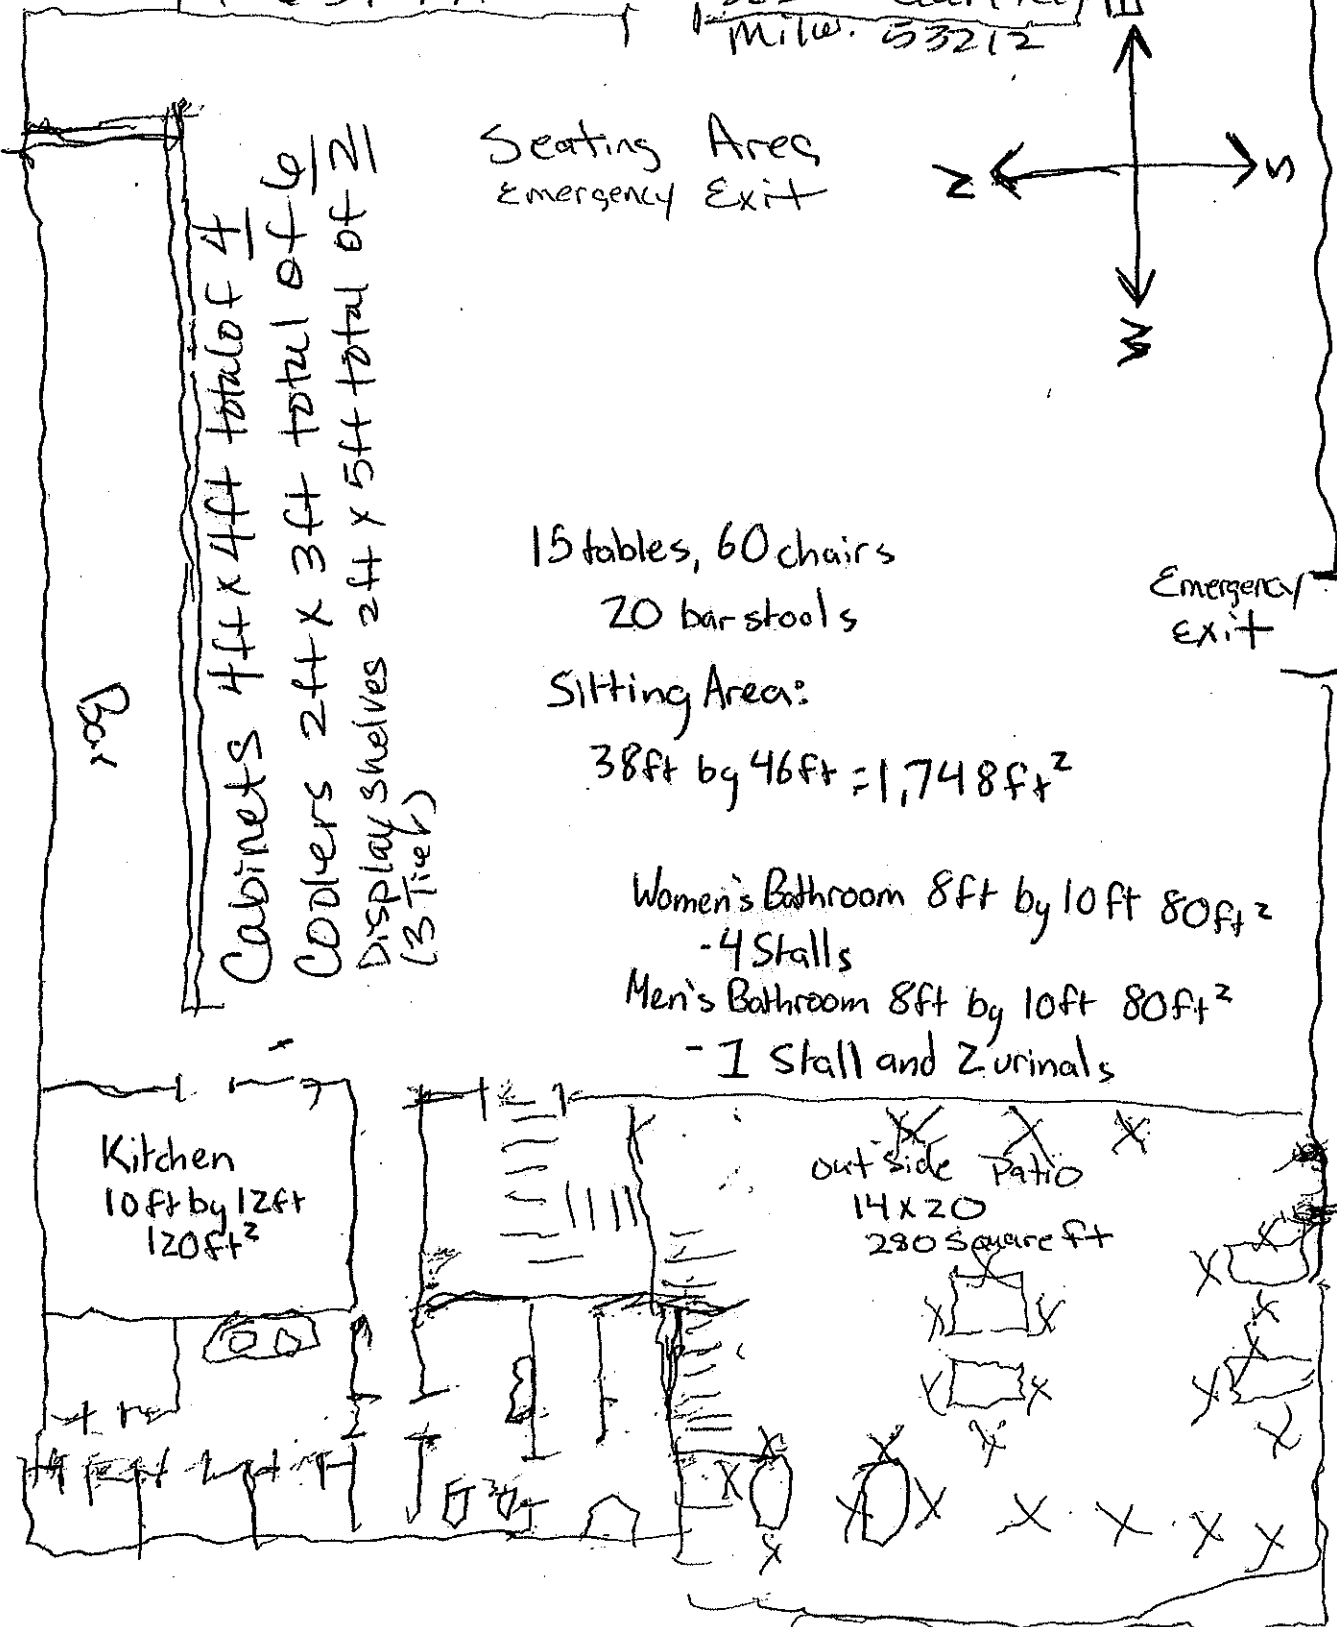 Milw. 53212
E
N
S
W
Seating Area
Emergency Exit
Cabinets 4ft x 4ft total of 4
Coolers 2ft x 3ft total of 6
Display shelves 2ft x 5ft total of 2
(3 Tier)
Bar
15 tables, 60 chairs
20 bar stools
Emergency
Exit
Sitting Area:
38ft by 46ft = 1,748ft²
Women's Bathroom 8ft by 10ft 80ft²
-4 Stalls
Men's Bathroom 8ft by 10ft 80ft²
- 1 Stall and 2 urinals
Kitchen
10ft by 12ft
120ft²
Out side Patio
14 x 20
280 square ft